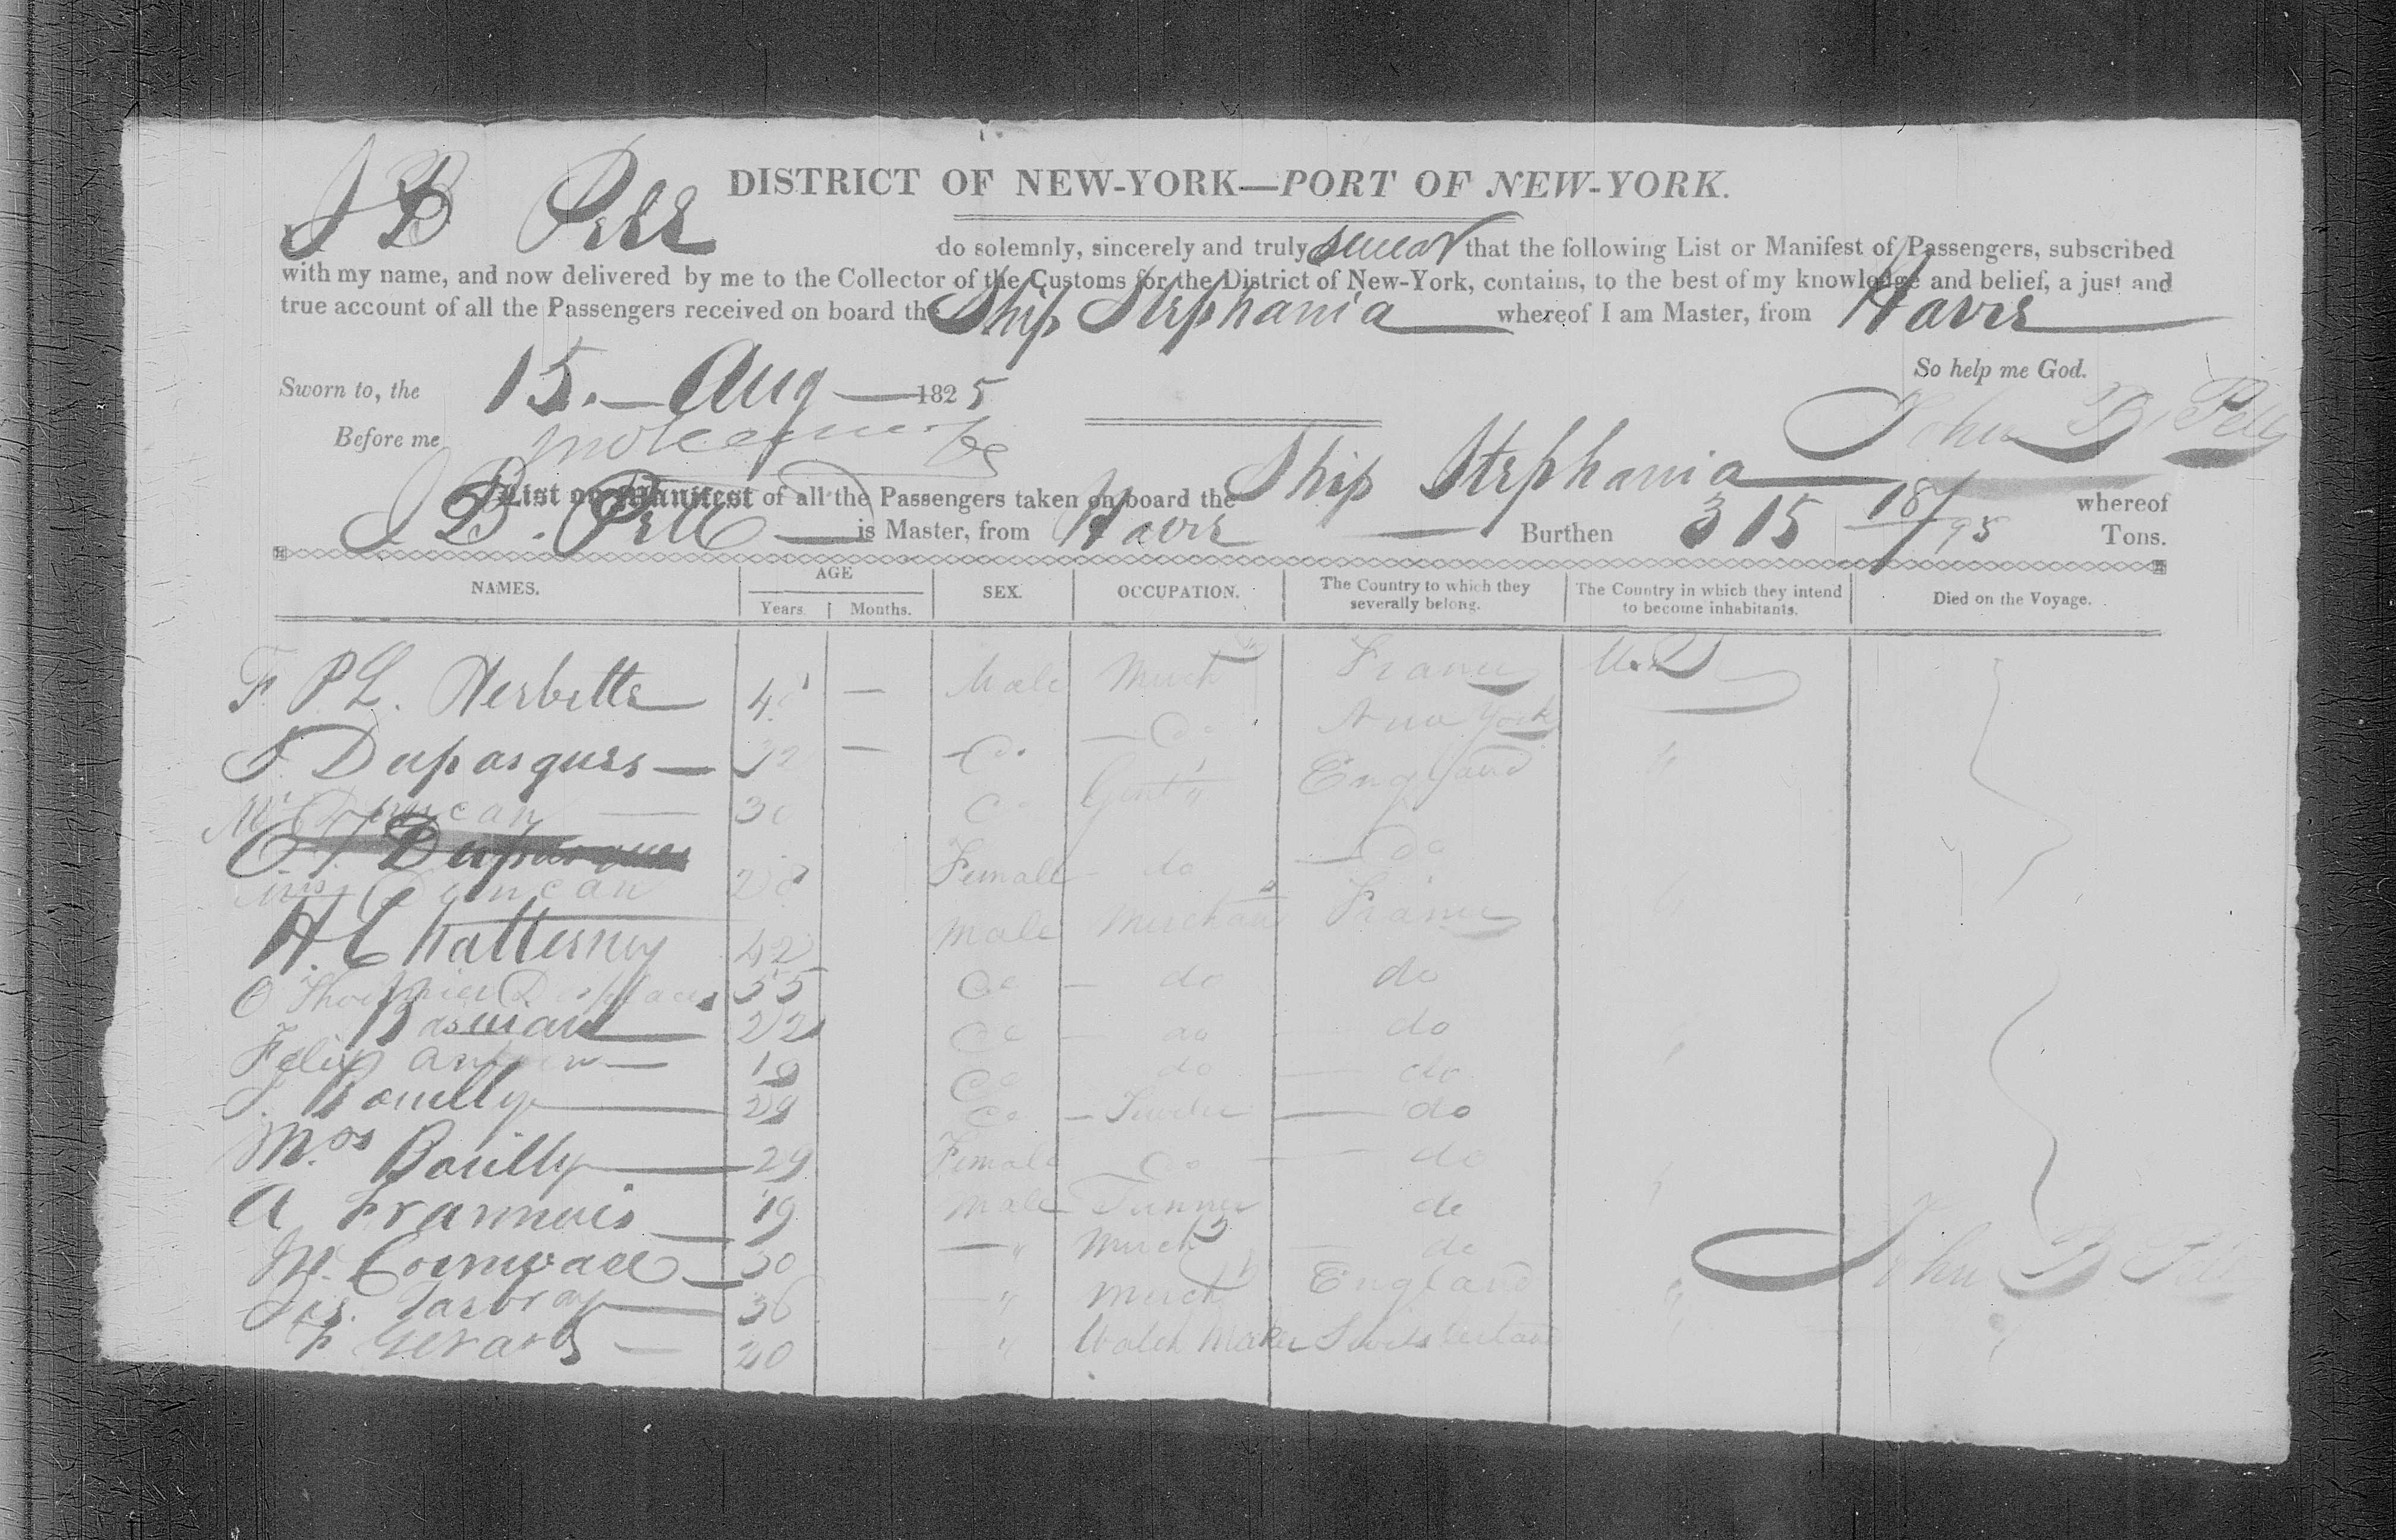 DISTRICT OF NEW-YORK—PORT OF NEW-YORK.
I, J B Pell do solemnly, sincerely and truly swear that the following List or Manifest of Passengers, subscribed
with my name, and now delivered by me to the Collector of the Customs for the District of New-York, contains, to the best of my knowledge and belief, a just and
true account of all the Passengers received on board the Ship Stephania whereof I am Master, from Havre
So help me God.
Sworn to, the 15. Aug 1825
John B Pell
Before me
List or Manifest of all the Passengers taken on board the Ship Stephania whereof
J B. Pell is Master, from Havre Burthen 315 18/95 Tons.
NAMES. AGE Years. Months. SEX. OCCUPATION. The Country to which they severally belong. The Country in which they intend to become inhabitants. Died on the Voyage.
F. P L. Herbette — Male Merch France U.S
Dupasquer — 32 — Do. — Do New York
Mr Duncan — 30 Do Gent England
Dupasquer
Mrs Duncan Female do — Do
H. Chatterney 42 Male Merchant France
55 Do — do do
22 Do — do do
Felix 19 Do do — do
J. Bouilly — 29 Do — — do
Mrs Bouilly — 29 Female Do — do
A 19 Male Tanner do
M. Cornwall — 30 — " Merch — do
Jas. — 36 — " Merch England
F Gerard — " Watch Maker Switzerland
John B Pell